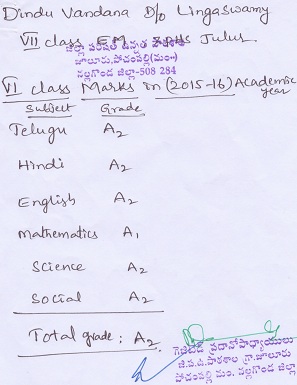 Dindu Vandana D/o Lingaswamy
VII class EM ZPHS Julur.
జిల్లా పరిషత్ ఉన్నత పాఠశాల
జూలూరు, పోచంపల్లి(మం॥)
నల్లగొండ జిల్లా-508 284
VI class Marks in (2015-16) Academic year
Subject Grade
Telugu A2
Hindi A2
English A2
Mathematics A1
Science A2
Social A2
Total grade : A2
గెజిటెడ్ ప్రధానోపాధ్యాయులు
జి.ప.ఉ.పాఠశాల గ్రా.జూలూరు
పోచంపల్లి మం. నల్లగొండ జిల్లా